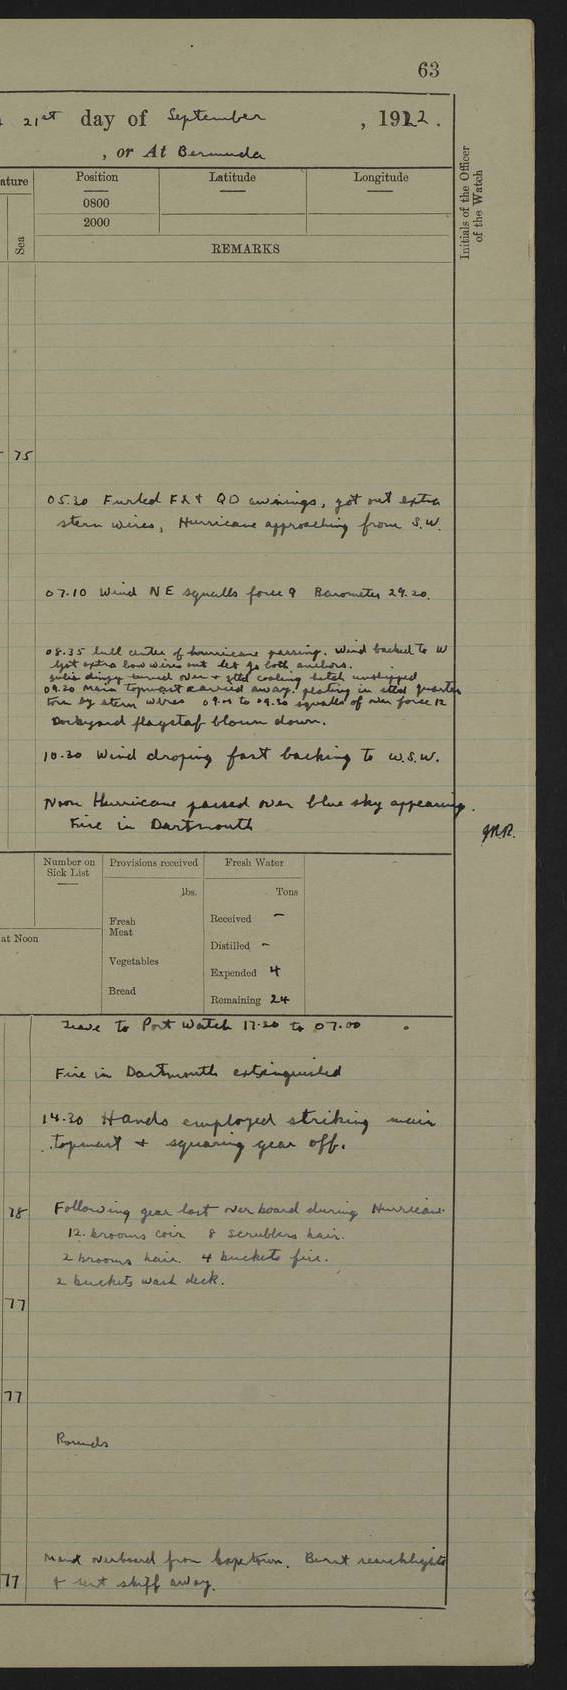 63
21st day of September , 1922.
, or At Bermuda
ature
Position
Latitude
Longitude
Initials of the Officer of the Watch
0800
2000
Sea
REMARKS
75
05.30 Furled FX & QD awnings, got out extra
stern wires, Hurricane approaching from S.W.
07.10 Wind NE squalls force 9 Barometer 29.20.
08.35 lull center of hourricane passing. Wind backed to W
Got extra bow wires out let go both anchors.
dingy turned over & coaling hatch unshipped
09.20 Main topmast carried away, plating in stbd quarter
torn by stern wires 09.00 to 09.30 squalls of over force 12
Dockyard flagstaf blown down.
10.30 Wind droping fast backing to W.S.W.
Noon Hurricane passed over blue sky appearing.
Fire in Dartmouth
Number on Sick List
Provisions received
Fresh Water
lbs.
Tons
Fresh Meat
Received –
at Noon
Distilled –
Vegetables
Expended 4
Bread
Remaining 24
Leave to Port Watch 17.30 to 07.00
Fire in Dartmouth extinguished
14.30 Hands employed striking main
topmast & squaring gear off.
78
Following gear lost overboard during Hurricane
12 brooms coir 8 scrubbers hair.
2 brooms hair. 4 buckets fire.
2 buckets wash deck.
77
77
Rounds
Man overboard from Capetown. Burnt searchlights
77
& sent skiff away.